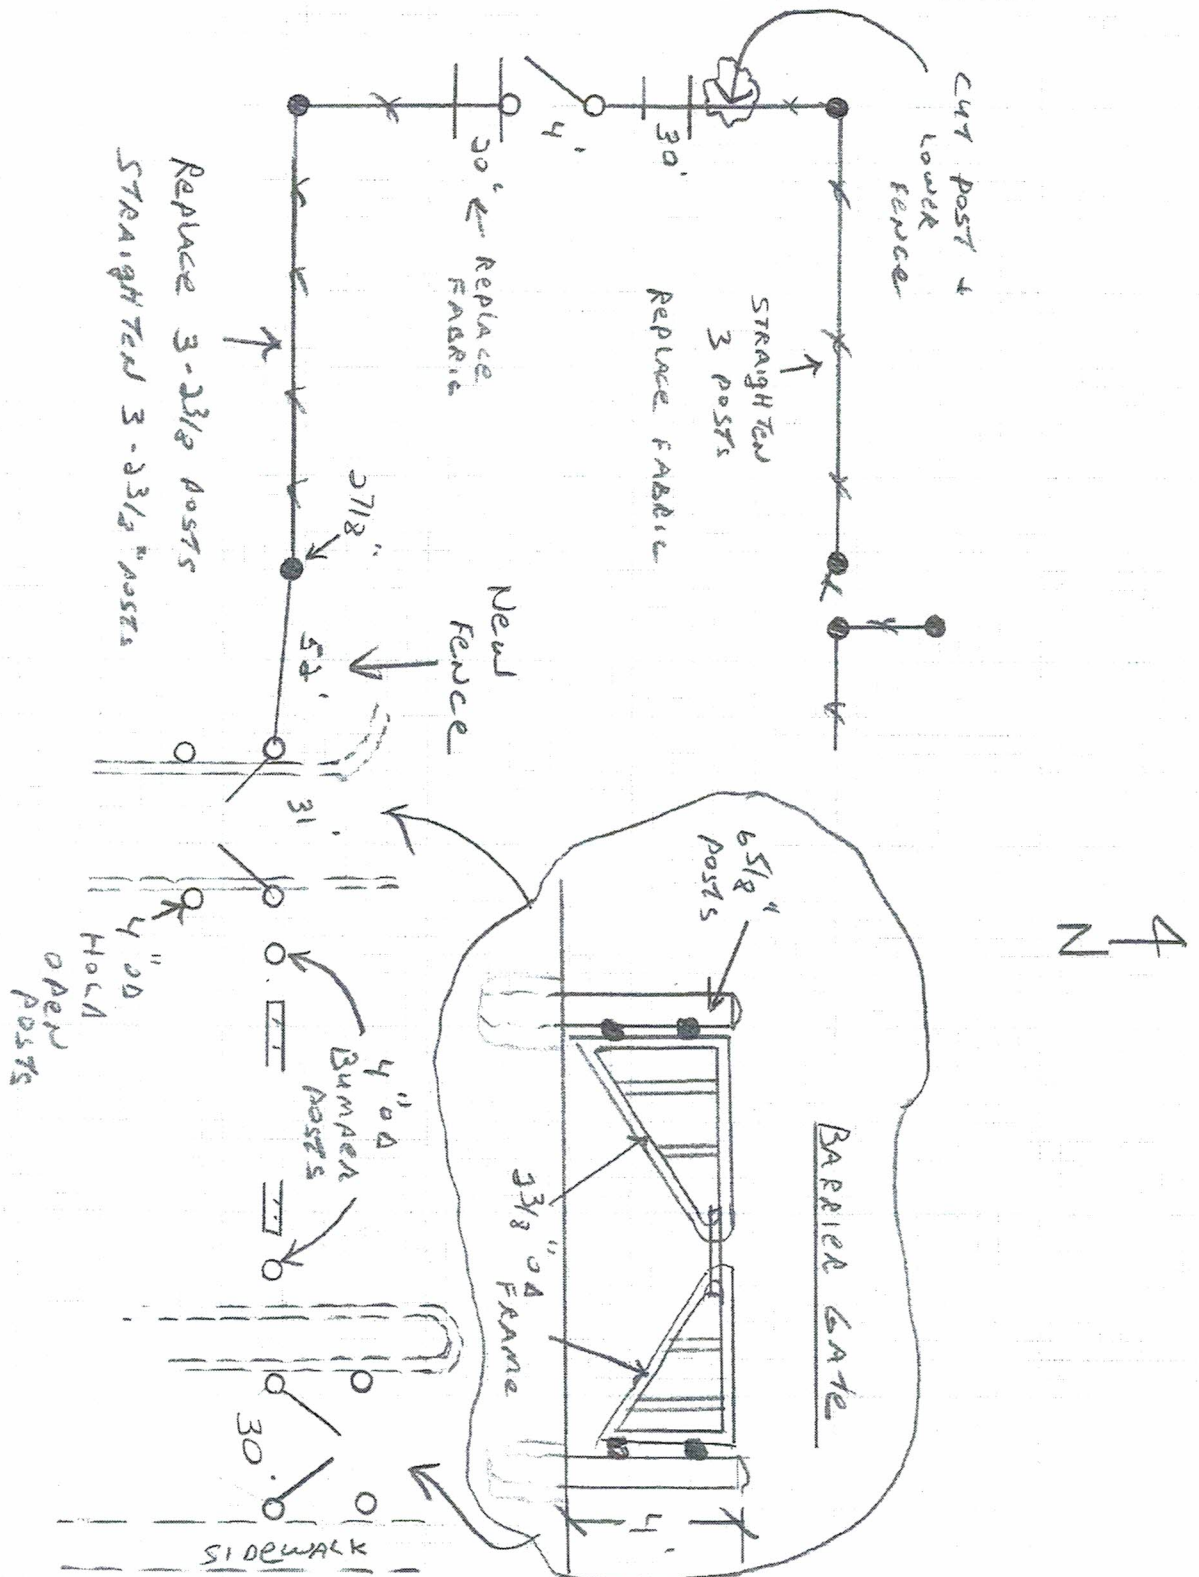 CUT POST &
LOWER
FENCE
30'
4'
30' ← REPLACE
FABRIC
STRAIGHTEN
3 POSTS
REPLACE FABRIC
REPLACE 3-2 3/8 POSTS
STRAIGHTEN 3-2 3/8" POSTS
2 7/8"
NEW
FENCE
52'
31'
4" OD
HOLD
OPEN
POSTS
4" OD
BUMPER
POSTS
30'
SIDEWALK
N
BARRIER GATE
6 5/8"
POSTS
2 3/8" OD
FRAME
4'